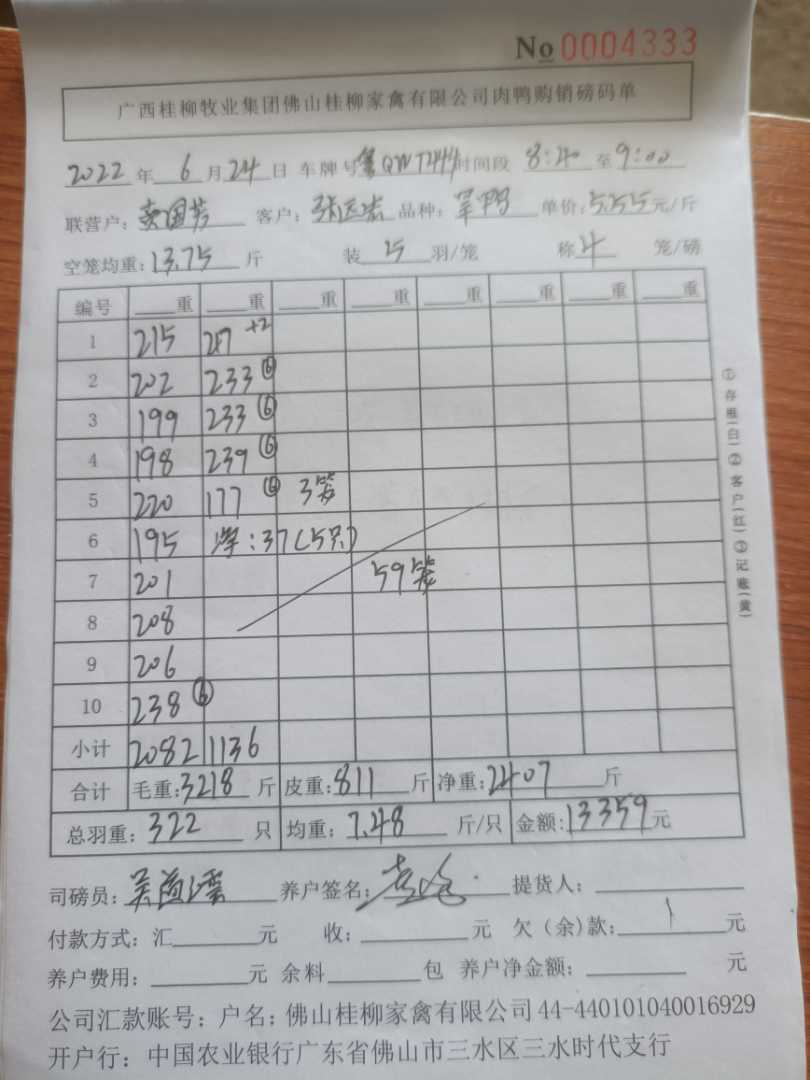 No 0004333
广西桂柳牧业集团佛山桂柳家禽有限公司肉鸭购销磅码单
2022 年 6 月 24 日 车牌号 粤QWT244 时间段 8:40 至 9:00
联营户: 国芳 客户: 张 品种: 单价: 5.55 元/斤
空笼均重: 13.75 斤 装 5 羽/笼 称 4 笼/磅
编号 重 重 重 重 重 重 重 重
1 215 217 +2
2 202 233 ⑥
3 199 233 ⑥
4 198 239 ⑥
5 220 177 ⑥ 3笼
6 195 : 37 (5只)
7 201 59笼
8 208
9 206
10 238 ⑥
小计 2082 1136
合计 毛重: 3218 斤 皮重: 811 斤 净重: 2407 斤
总羽重: 322 只 均重: 7.48 斤/只 金额: 13359 元
司磅员: 养户签名: 提货人:
付款方式: 汇 元 收: 元 欠(余)款: 元
养户费用: 元 余料 包 养户净金额: 元
公司汇款账号: 户名: 佛山桂柳家禽有限公司 44-440101040016929
开户行: 中国农业银行广东省佛山市三水区三水时代支行
①存根(白)②客户(红)③记账(黄)